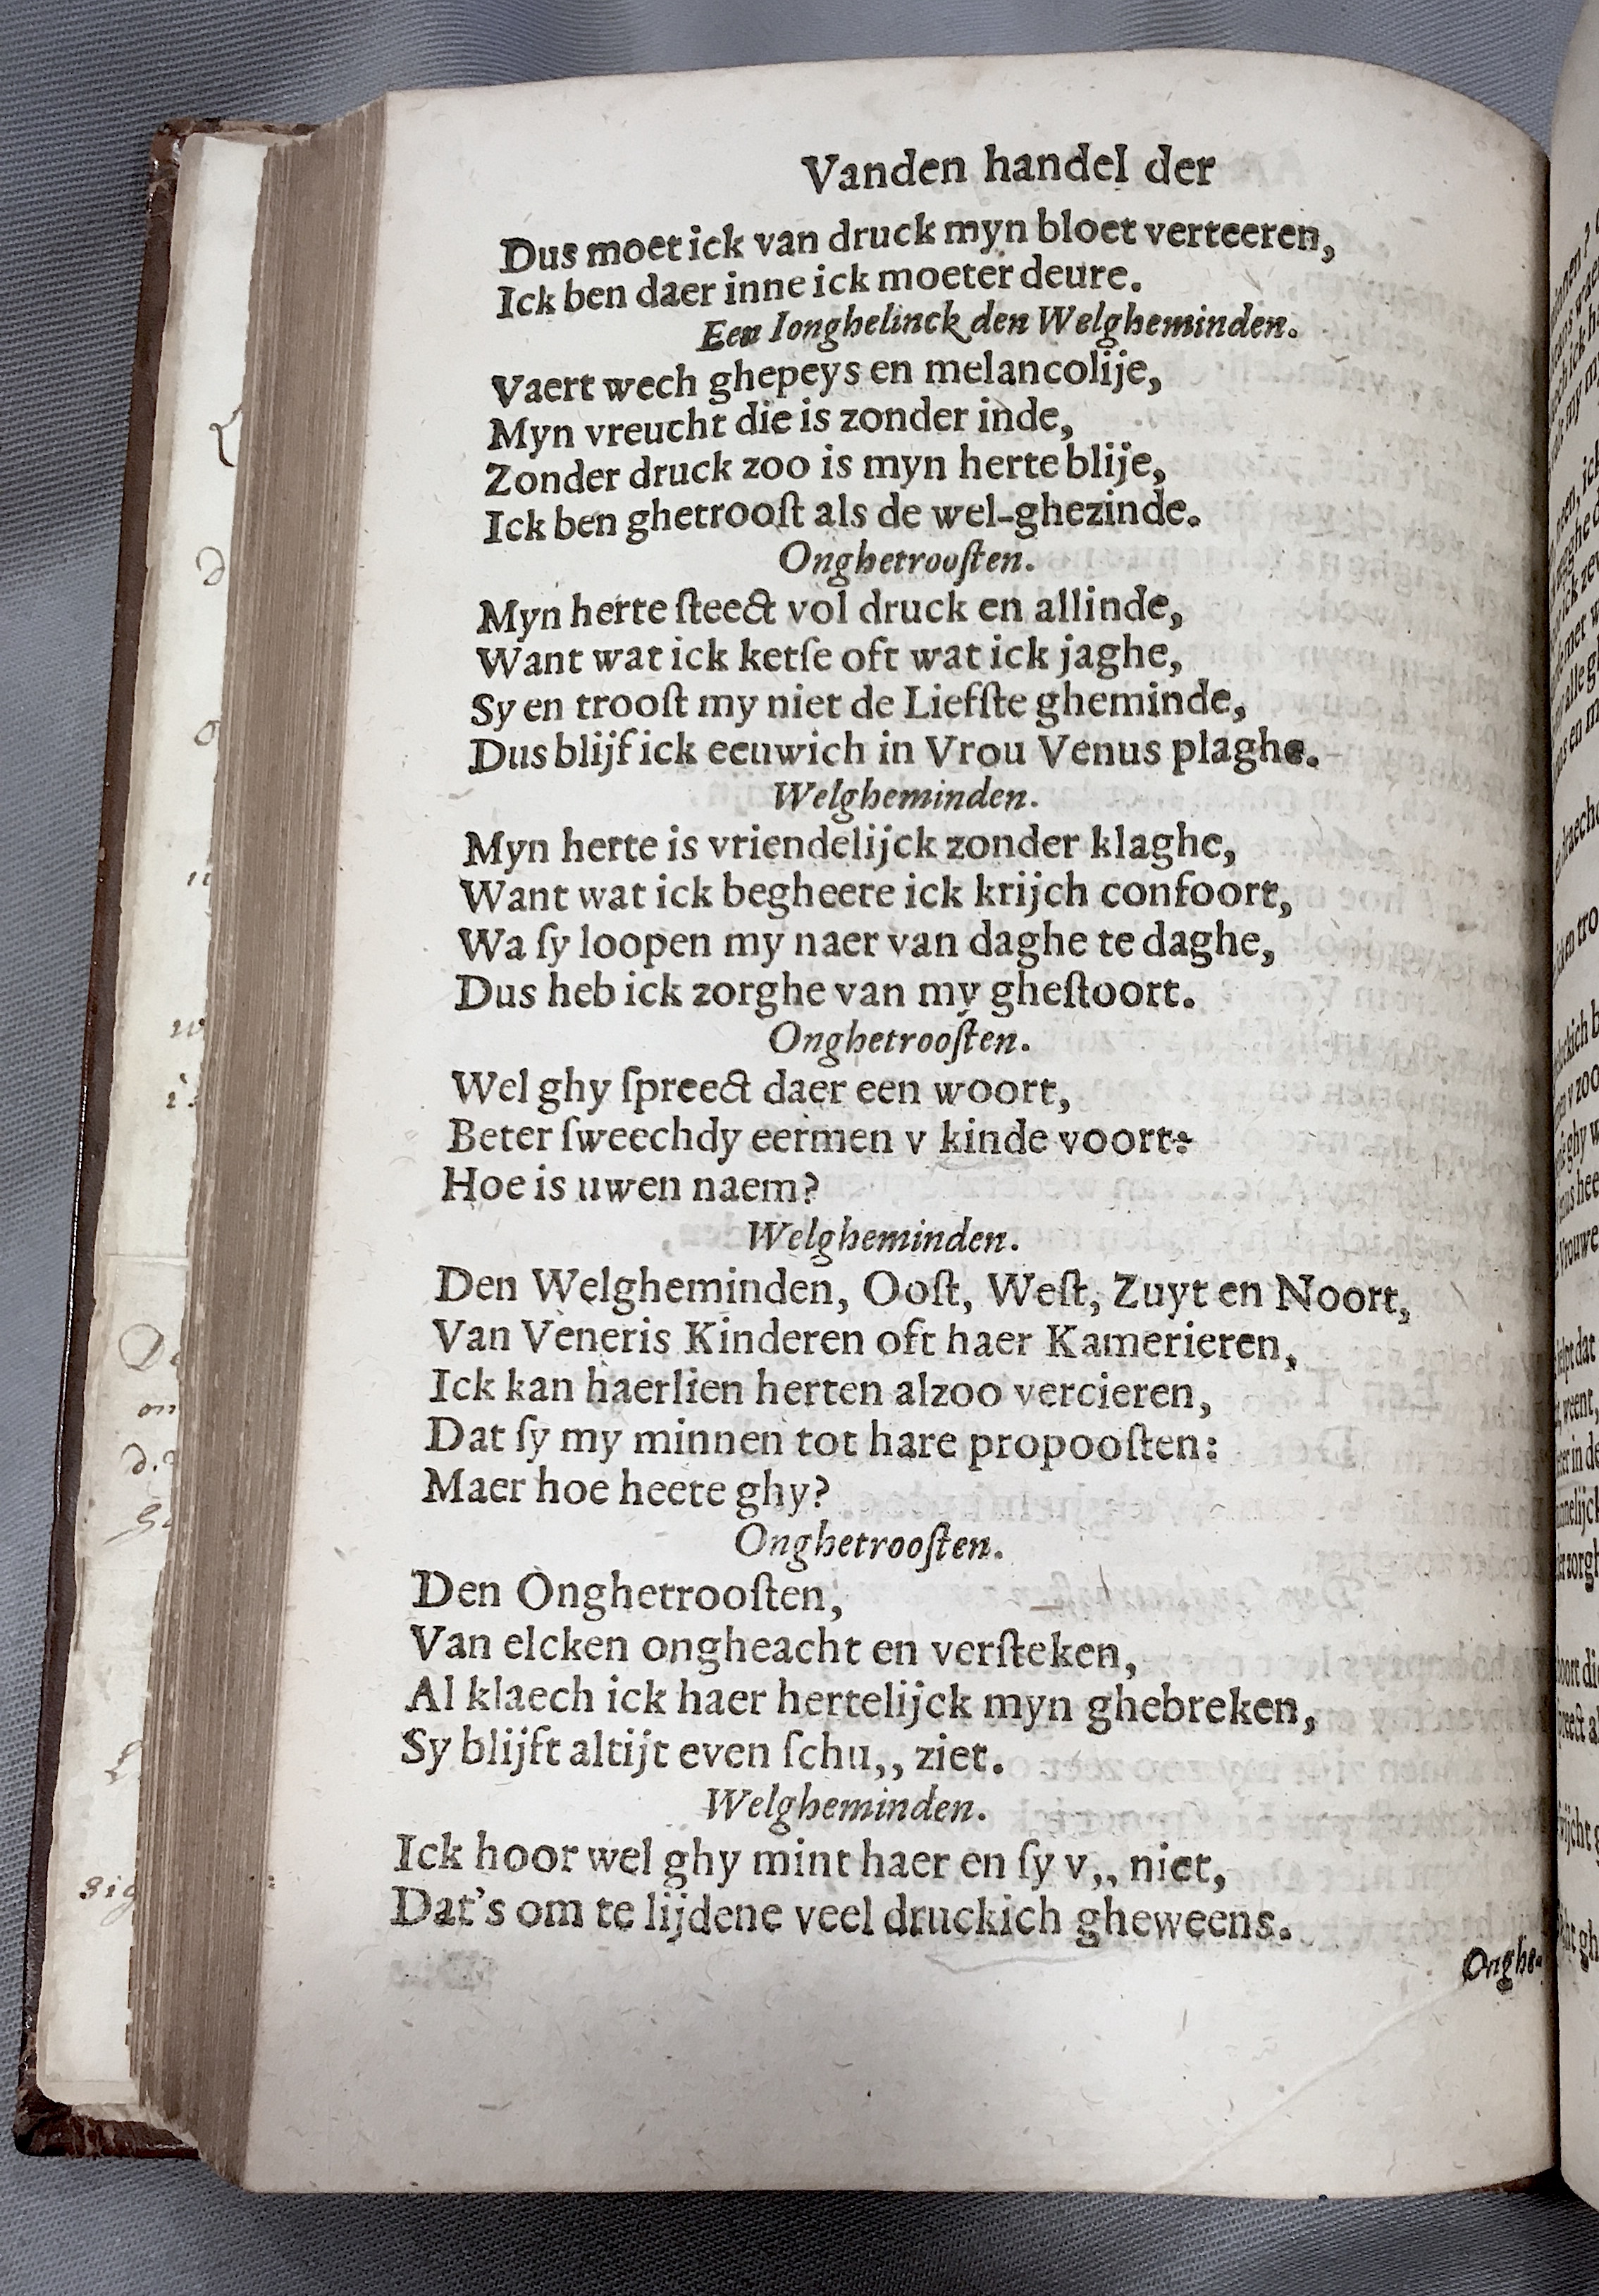 Vanden handel der
Dus moet ick van druck myn bloet verteeren,
Ick ben daer inne ick moeter deure.
Een Ionghelinck den Welgheminden.
Vaert wech ghepeys en melancolije,
Myn vreucht die is zonder inde,
Zonder druck zoo is myn herte blije,
Ick ben ghetrooſt als de wel-ghezinde.
Onghetrooſten.
Myn herte ſteect vol druck en allinde,
Want wat ick ketſe oft wat ick jaghe,
Sy en trooſt my niet de Liefſte gheminde,
Dus blijf ick eeuwich in Vrou Venus plaghe.
Welgheminden.
Myn herte is vriendelijck zonder klaghe,
Want wat ick begheere ick krijch confoort,
Wa ſy loopen my naer van daghe te daghe,
Dus heb ick zorghe van my gheſtoort.
Onghetrooſten.
Wel ghy ſpreect daer een woort,
Beter ſweechdy eermen v kinde voort:
Hoe is uwen naem?
Welgheminden.
Den Welgheminden, Ooſt, Weſt, Zuyt en Noort,
Van Veneris Kinderen oft haer Kamerieren,
Ick kan haerlien herten alzoo vercieren,
Dat ſy my minnen tot hare propooſten:
Maer hoe heete ghy?
Onghetrooſten.
Den Onghetrooſten,
Van elcken ongheacht en verſteken,
Al klaech ick haer hertelijck myn ghebreken,
Sy blijft altijt even ſchu,, ziet.
Welgheminden.
Ick hoor wel ghy mint haer en ſy v,, niet,
Dat's om te lijdene veel druckich gheweens.
Onghe-